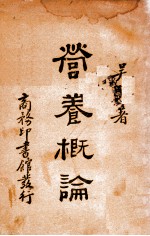 吳著
營養概論
商務印書館發行